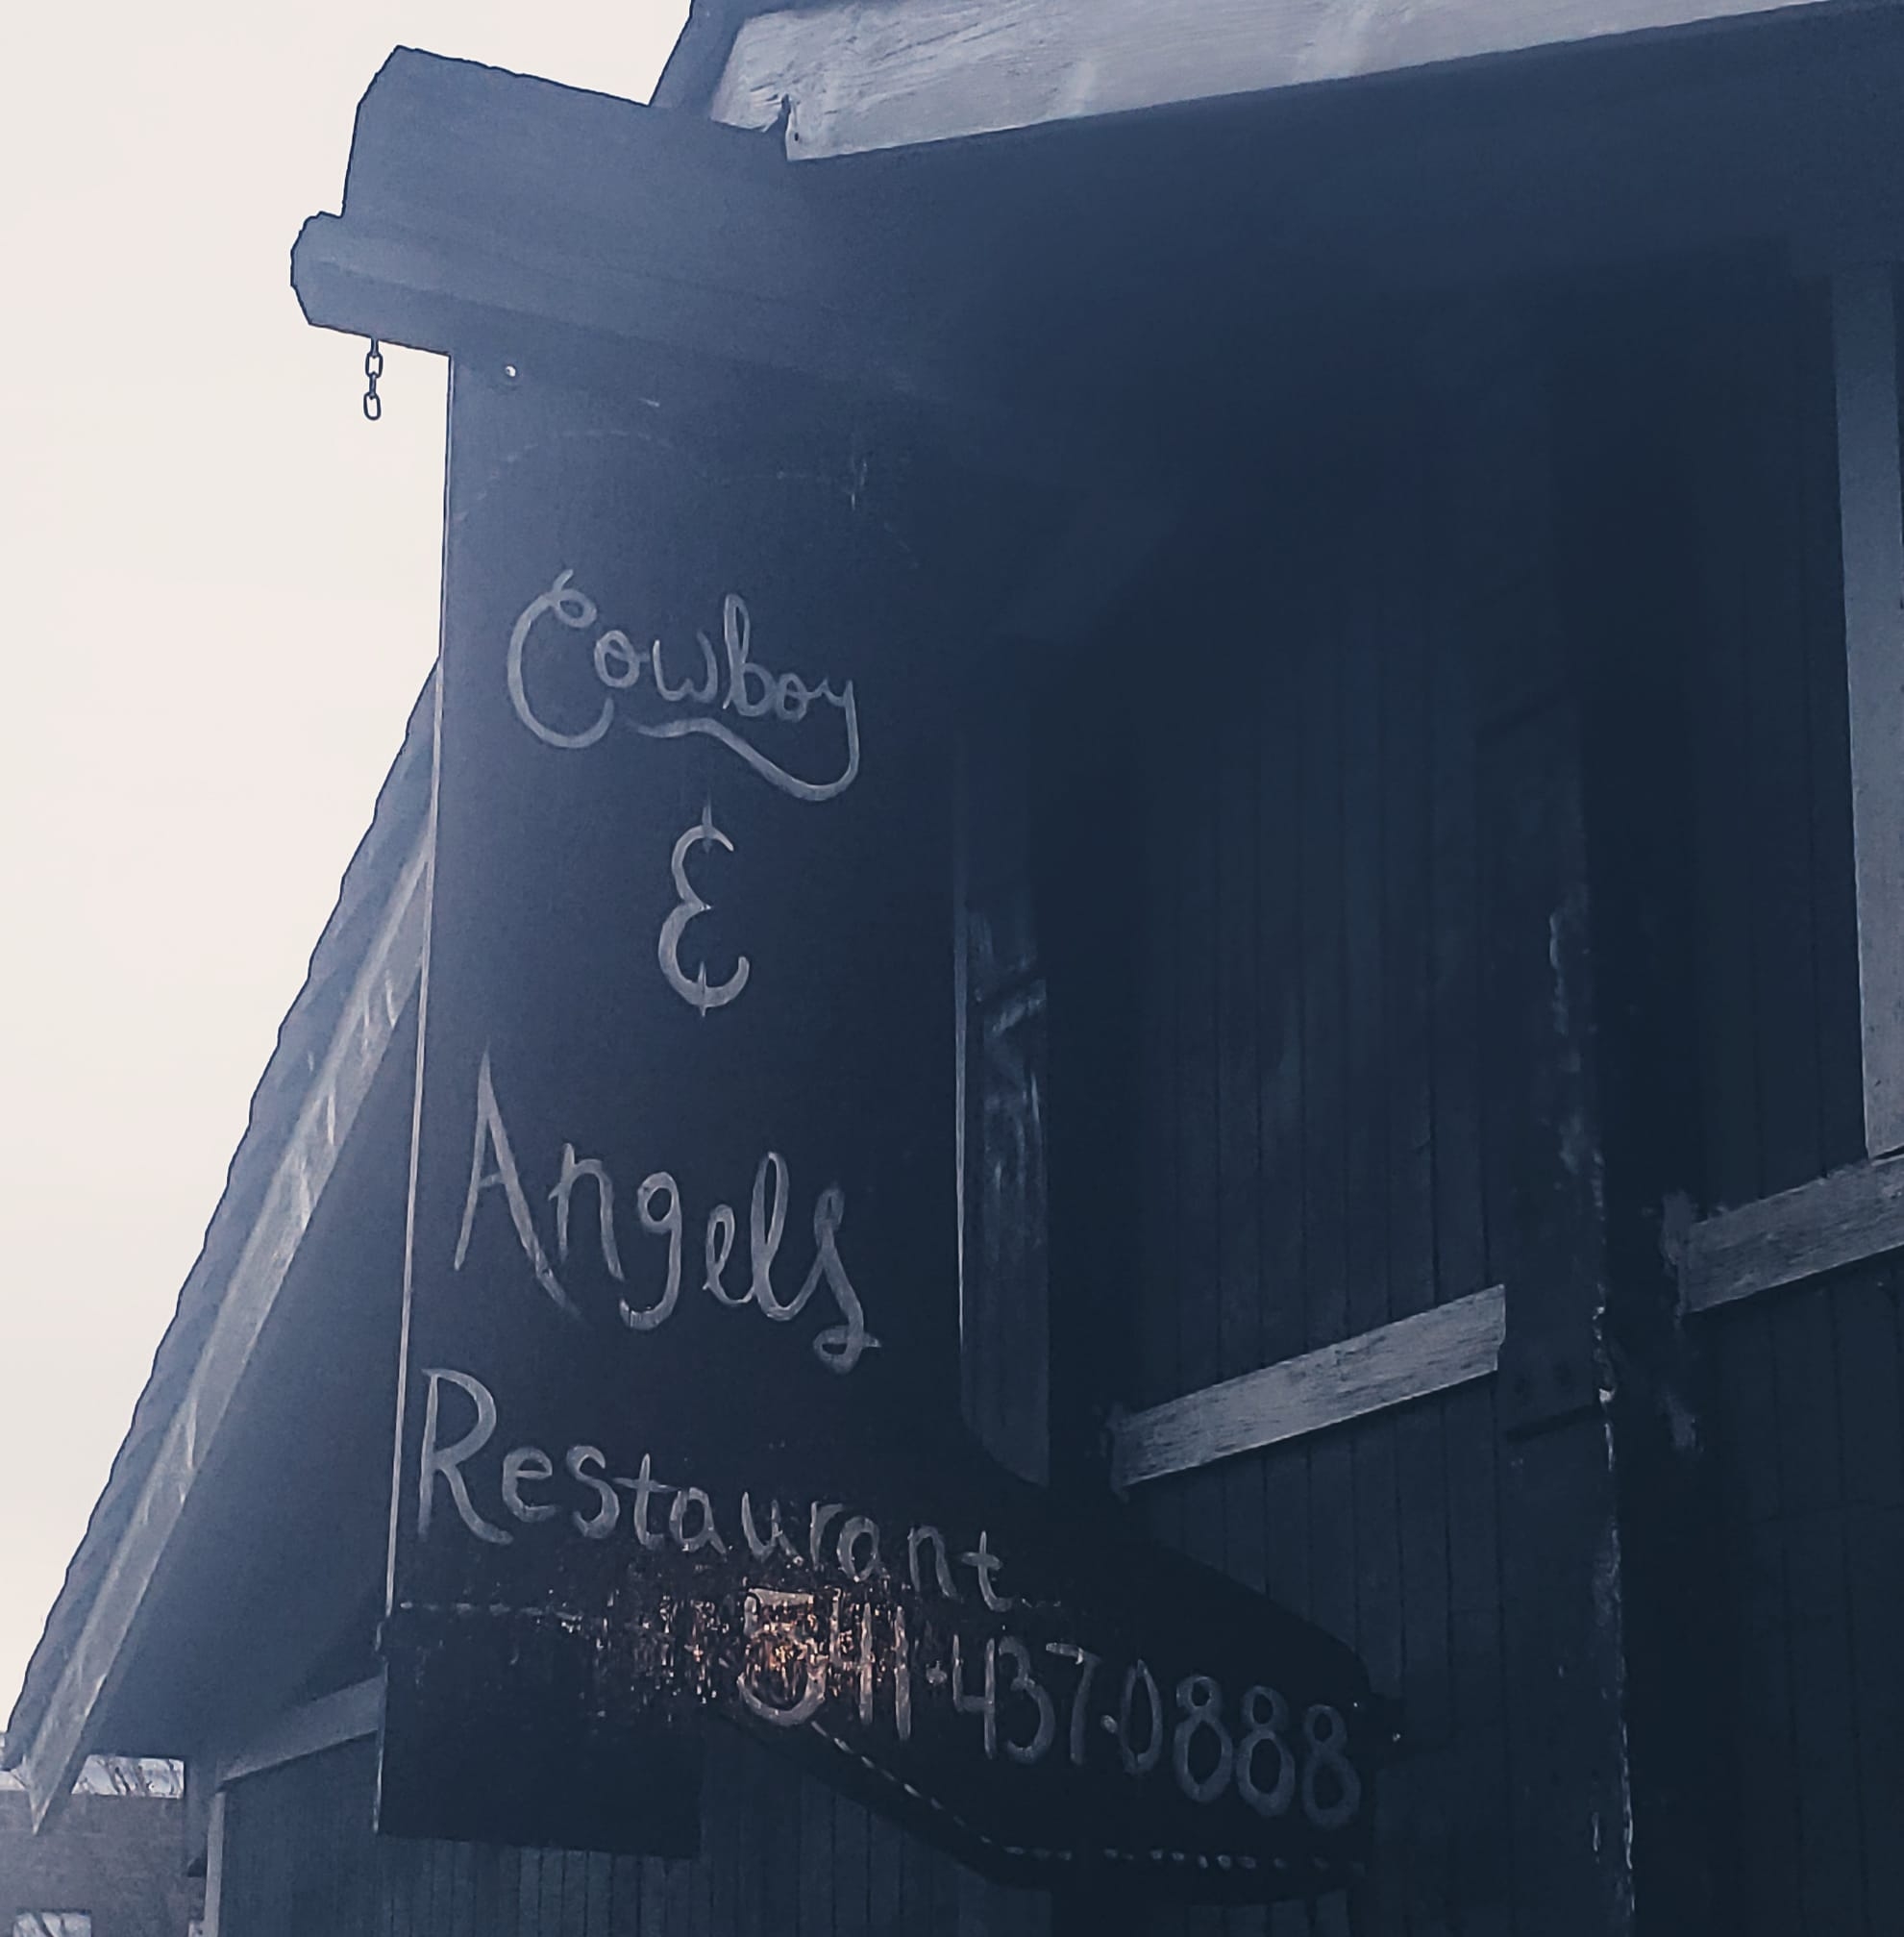 Cowboy
&
Angels
Restaurant
541·437·0888